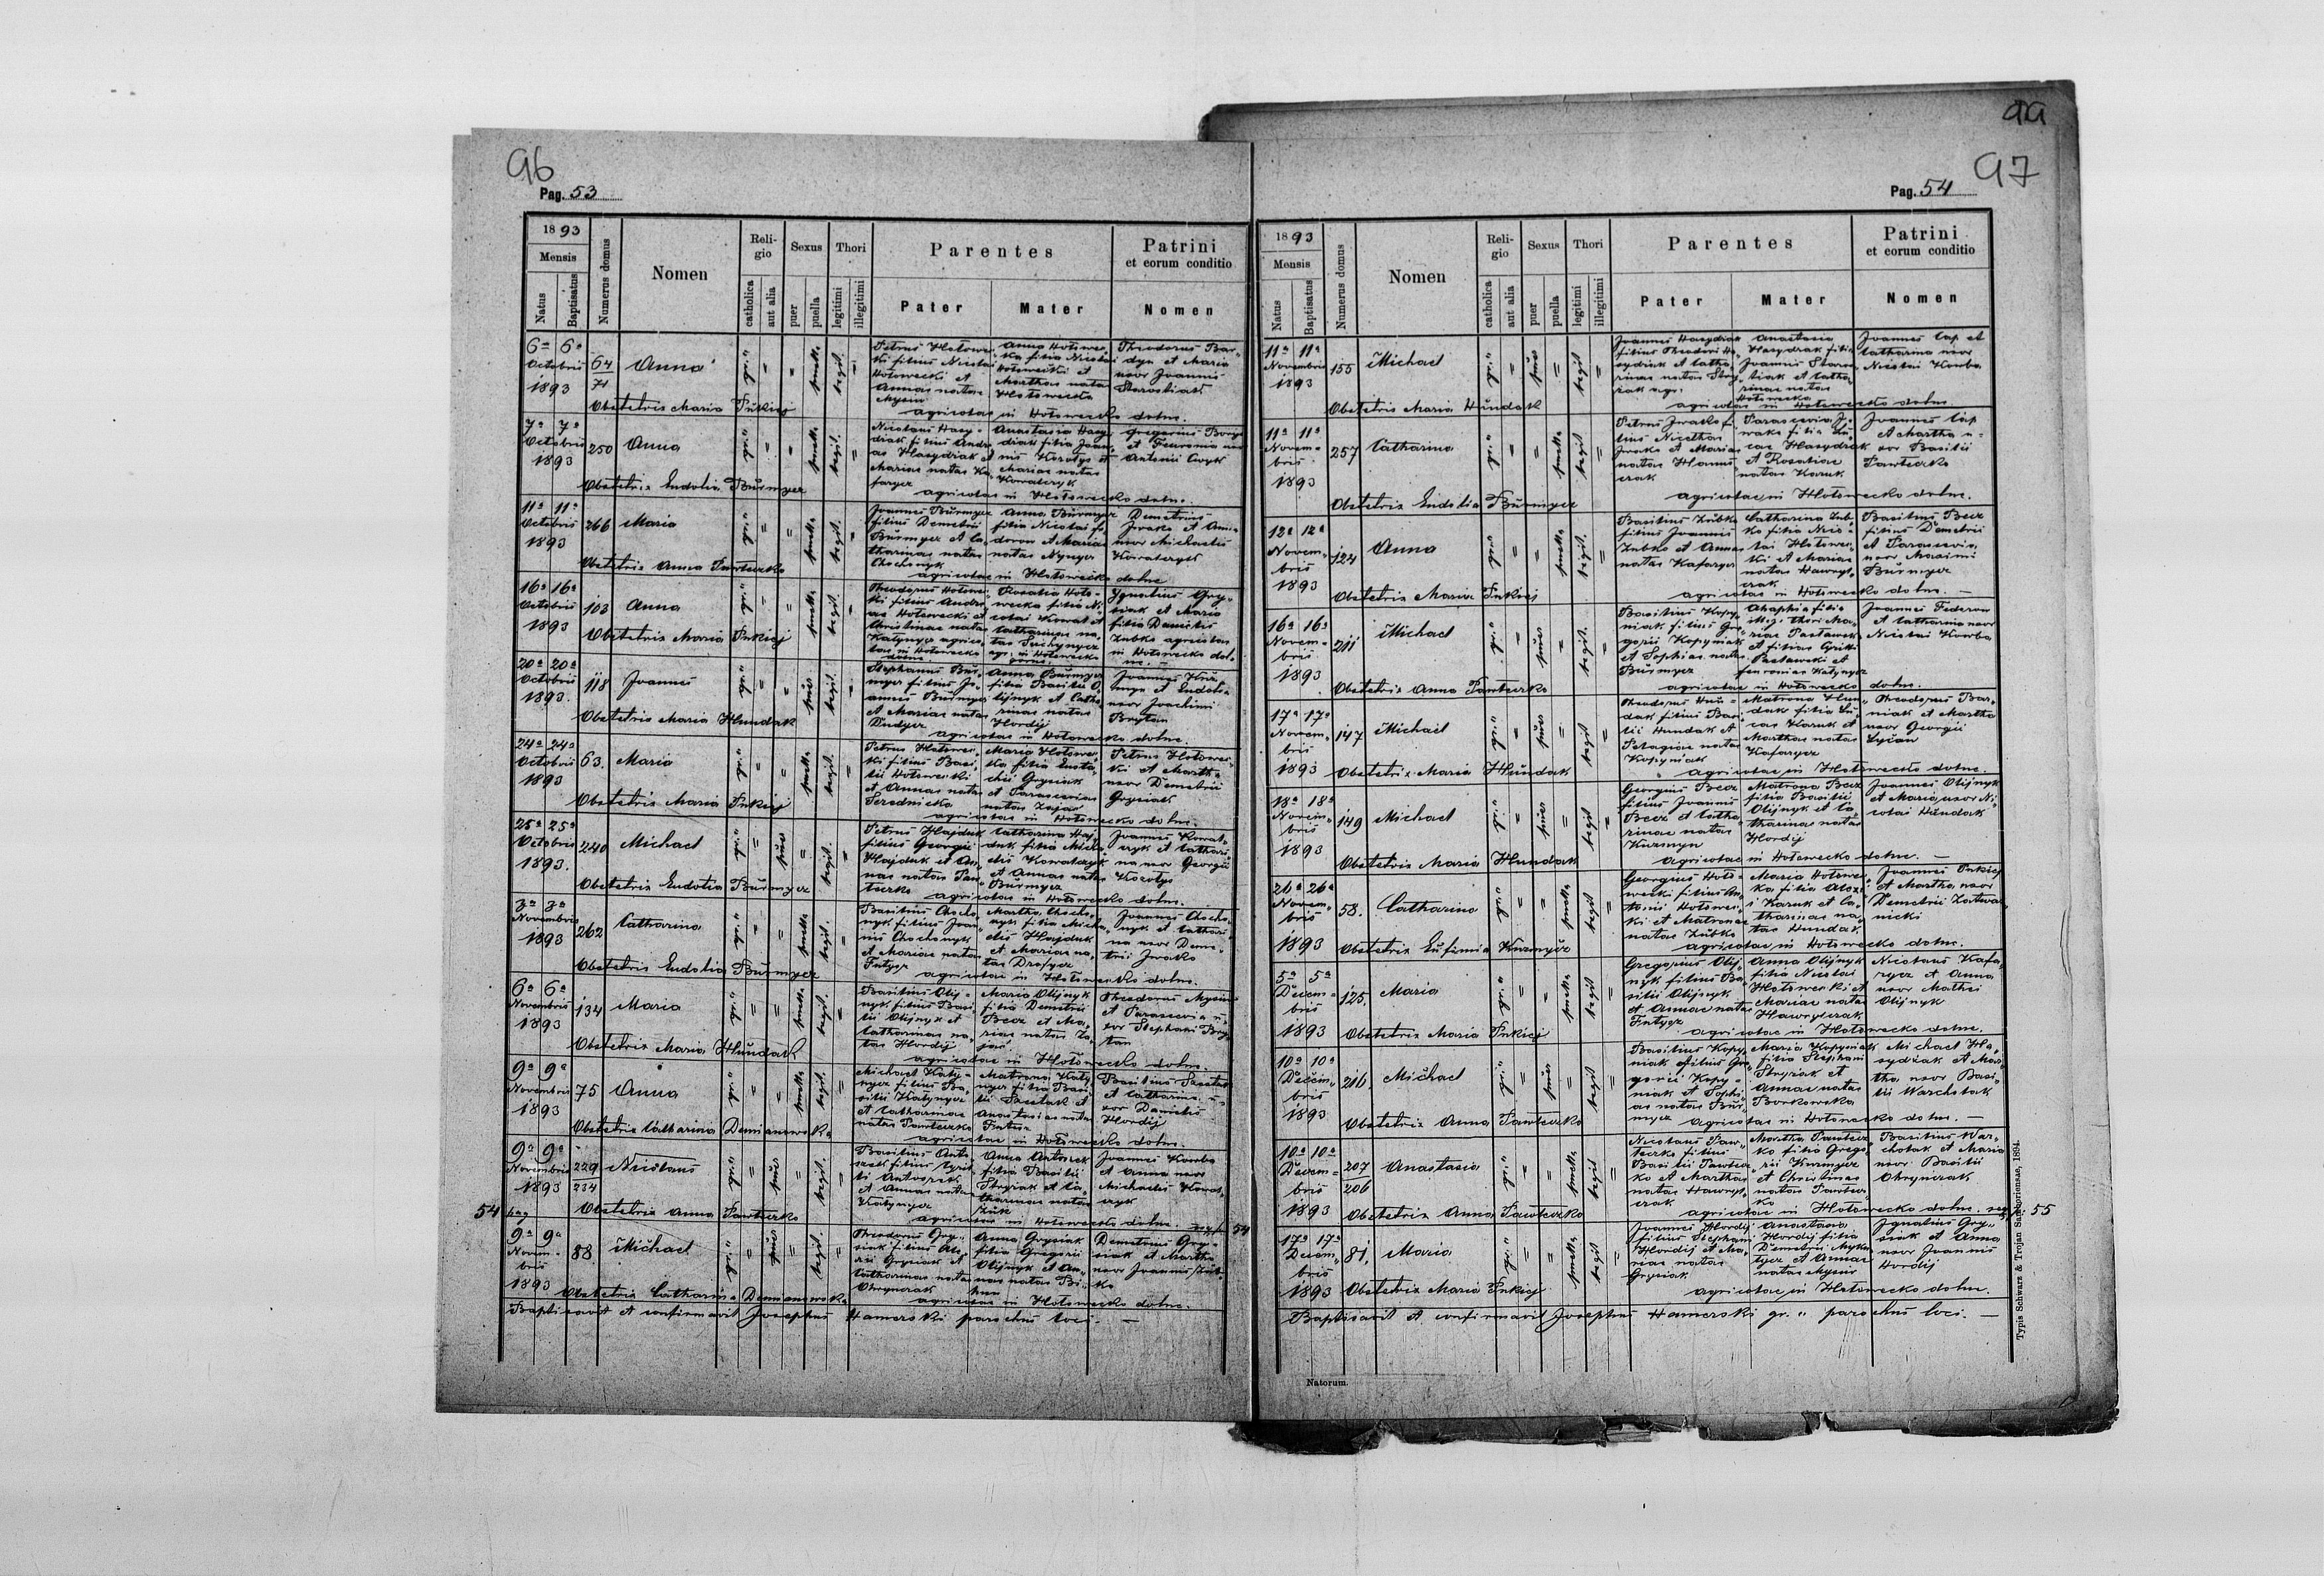 96
Pag. 53
1893
Mensis
Natus
Baptisatus
Numerus domus
Nomen
Religio
catholica
aut alia
Sexus
puer
puella
Thori
legitimi
illegitimi
Parentes
Pater
Mater
Patrini
et eorum conditio
Nomen
6a 6a
Octobris
1893
64
71
Anna
gr. "
puella
legit.
Petrus Hołowec-
ki filius Nicolai
Hołowecki et
Annae natae
Mysiu
Anna Hołowec-
ka filia Nicolai
Hołowecki et
Marthae natae
Hołowecka
Theodorus Bar-
dyn et Maria
uxor Joannis
Starostiak
Obstetrix Maria Pukiej
agricolae in Hołowecko dolne.
7a 7a
Octobris
1893
250
Anna
gr. "
puella
legit.
Nicolaus Hasy-
driak filius Andre-
ae Hasydriak et
Mariae natae Ka-
faryer
Anastasia Hasy-
driak filia Joan-
nis Korotys et
Mariae natae
Kowalczyk
Gregorius
et Fevronia uxor
Antonii Cwyk
Obstetrix Eudotia Burmyer
agricolae in Hołowecko dolne.
11a 11a
Octobris
1893
266
Maria
gr. "
puella
legit.
Joannes Burmyer
filius Demetrii
Burmyer et Ca-
tharinae natae
Chochonyk
Anna Burmyer
filia Nicolai Fe-
doron et Mariae
natae Nynyer
Demetrius
Jwasko et Anna
uxor Michaelis
Kowalczyk
Obstetrix Anna Pawleczko
agricolae in Hołowecko dolne
16a 16a
Octobris
1893
103
Anna
gr. "
puella
legit.
Theodorus Hołowec-
ki filius Andre-
ae Hołowecki et
Christinae natae
Katynycz agrico-
lae in Hołowecko
dolne
Rosalia Hoło-
wecka filia Ni-
colai Kowal et
Catharinae na-
tae Suchynycz
agr. in Hołowecko
górne.
Ignatius Gry-
siak et Maria
filia Danielis
Zubko agricolae
in Hołowecko dol-
ne.
Obstetrix Maria Pukiej
20a 20a
Octobris
1893.
118
Joannes
gr. "
puer
legit.
Stephanus Bur-
myer filius Jo-
annis Burmyer
et Mariae natae
Dudycz
Anna Burmyer
filia Basilii O-
lijnyk et Catha-
rinae natae
Hordij
Joannes Kur-
myn et Eudotia
uxor Joachimi
Brytan
Obstetrix Maria Hundak
agricolae in Hołowecko dolne.
24a 24a
Octobris
1893
63.
Maria
gr. "
puella
legit.
Petrus Hołowec-
ki filius Basi-
lii Hołowecki
et Annae natae
Serednicka
Maria Hołowec-
ka filia Eusta-
chii Grysiak
et Parasceviae
natae Zajac
Petrus Hołowec-
ki et Martha
uxor Demetrii
Grysiak
Obstetrix Maria Pukiej
agricolae in Hołowecko dolne.
25a 25a
Octobris
1893.
240
Michael
gr. "
puer
legit.
Petrus Hajduk
filius Georgii
Hajduk et An-
nae natae Paw-
leczko
Catharina Haj-
duk filia Micha-
elis Kowalczyk
et Annae natae
Burmyer
Joannes Kowal-
czyk et Cathari-
na uxor Georgii
Korotys
Obstetrix Eudotia Burmyer
agricolae in Hołowecko dolne.
3a 3a
Novembris
1893
262
Catharina
gr. "
puella
legit.
Basilius Chocho-
nyk filius Joan-
nis Chochonyk
et Mariae natae
Futyer
Martha Chocho-
nyk filia Micha-
elis Hajduk
et Mariae na-
tae Drofycz
Joannes Chocho-
nyk et Cathari-
na uxor Deme-
trii Jwasko
Obstetrix Eudotia Burmyer
agricolae in Hołowecko dolne.
6a 6a
Novembris
1893
134
Maria
gr. "
puella
legit.
Basilius Olij-
nyk filius Basi-
lii Olijnyk et
Catharinae na-
tae Hordij
Maria Olijnyk
filia Demetrii
Becz et Ma-
riae natae Za-
jac
Theodorus Mysiu
et Parascevia u-
xor Stephani Bry-
tan
Obstetrix Maria Hundak
agricolae in Hołowecko dolne.
9a 9a
Novembris
1893
75
Anna
gr. "
puella
legit.
Michael Katy-
nycz filius Ba-
silii Katynycz
et Catharinae
natae Pawleczko
Matrona Katy-
nycz filia Basi-
lii Secelak et
Anastasiae natae
Basilius Secelak
et Catharina u-
xor Danielis
Hordij
Obstetrix Catharina Demianowska
agricolae in Hołowecko dolne.
9a 9a
Novembris
1893
229
234
Nicolaus
gr. "
puer
legit.
Basilius Anto-
szek filius Cyril-
li Antoszek
et Annae natae
Katynycz
Anna Antoszek
filia Basilii
Stryziak et Ca-
tharinae natae
Zuk
Joannes Kowba
et Anna uxor
Michaelis Kowal-
czyk
Obstetrix Anna Pawleczko
agricolae in Hołowecko dolne.
54
54
9a 9a
Novem-
bris
1893
88.
Michael
gr. "
puer
legit
Theodorus Gry-
siak filius Ale-
xii Grysiak et
Catharinae natae
Ohrynczak
Anna Grysiak
filia Gregorii
Olijnyk et An-
nae natae
Demetrius Gry-
siak et Martha
uxor Joannis Zub-
ko
Obstetrix Catharina Demianowska
agricolae in Hołowecko dolne.
Baptisavit et confirmavit Josephus Hamerski parochus loci. —
99
97
Pag. 54
1893
Mensis
Natus
Baptisatus
Numerus domus
Nomen
Religio
catholica
aut alia
Sexus
puer
puella
Thori
legitimi
illegitimi
Parentes
Pater
Mater
Patrini
et eorum conditio
Nomen
11a 11a
Novembris
1893
155
Michael
gr. "
puer
legit
Joannes Hasydriak
filius Theodori Ha-
sydriak et Catha-
rinae natae Stry-
ziak agr.
Anastasia
Hasydriak filia
Joannis Staros-
tiak et Catha-
rinae natae
Hołowecka
Joannes Cap et
Catharina uxor
Nicolai Kowba
Obstetrix Maria Hundak
agricolae in Hołowecko dolne
11a 11a
Novem-
bris
1893
257
Catharina
gr. "
puella
legit.
Petrus Jwasko fi-
lius Nicethae
Jwasko et Mariae
natae Hawryl-
czak
Parascevia J-
wasko filia Lu-
cae Hasydriak
et Rosaliae
natae Karuk
Joannes Cap
et Martha u-
xor Basilii
Pawleczko
Obstetrix Eudotia Burmyer
agricolae in Hołowecko dolne.
12a 12a
Novem-
bris
1893
124
Anna
gr. "
puella
legit.
Basilius Zubko
filius Joannis
Zubko et Annae
natae Kafaryer
Catharina Zub-
ko filia Nico-
lai Hołowec-
ki et Mariae
natae Hawryl-
czak
Basilius Becz
filius Demetrii
et Parascevia
uxor Maximi
Burmyer
Obstetrix Maria Pukiej
agricolae in Hołowecko dolne. —
16a 16a
Novem-
bris
1893
211
Michael
gr. "
puer
legit.
Basilius Kopy-
niak filius Gre-
gorii Kopyniak
et Sophiae natae
Burmyer
Ahaphia filia
illeg. thori Ma-
riae Pasławska
et filiae Cyrilli
Pasławski et
Fevroniae Katynycz
Joannes Fedoron
et Catharina uxor
Nicolai Kowba
Obstetrix Anna Pawleczko
agricolae in Hołowecko dolne.
17a 17a
Novem-
bris
1893
147
Michael
gr. "
puer
legit
Theodorus Hun-
dak filius Basi-
lii Hundak et
Pelagiae natae
Kopyniak
Matrona Hun-
dak filia Lu-
cae Karuk et
Marthae natae
Kafaryer
Theodorus Bar-
niak et Martha
uxor Georgii
Lyczan
Obstetrix Maria Hundak
agricolae in Hołowecko dolne.
18a 18a
Novem-
bris
1893
149
Michael
gr. "
puer
legit
Georgius Becz
filius Joannis
Becz et Catha-
rinae natae
Kurmyn
Matrona Becz
filia Basilii
Olijnyk et Ca-
tharinae natae
Hordij
Joannes Olijnyk
et Maria uxor Ni-
colai Hundak
Obstetrix Maria Hundak
agricolae in Hołowecko dolne. —
26a 26a
Novem-
bris
1893
58.
Catharina
gr. "
puella
legit
Georgius Hoło-
wecki filius An-
tonii Hołowec-
ki et Matronae
natae Zubko
Maria Hołowec-
ka filia Alexi-
i Karuk et Ca-
tharinae na-
tae Hundak
Joannes Pukiej
et Martha uxor
Demetrii Zatwar-
nicki
Obstetrix Eufimia Kurmyer
agricolae in Hołowecko dolne.
5a 5a
Decem-
bris
1893
125.
Maria
gr. "
puella
legit
Gregorius Olij-
nyk filius Ba-
silii Olijnyk
et Annae natae
Futyer
Anna Olijnyk
filia Nicolai
Hołowecki et
Mariae natae
Hawrylczak
Nicolaus Kafa-
rycz et Anna
uxor Mathei
Olijnyk
Obstetrix Maria Pukiej
agricolae in Hołowecko dolne.
10a 10a
Decem-
bris
1893
216
Michael
gr. "
puer
legit
Basilius Kopy-
niak filius Gre-
gorii Kopy-
niak et Sophi-
ae natae Bur-
myer
Maria Kopyniak
filia Stephani
Stryziak et
Annae natae
Borkowska
Michael Ha-
sydriak et Mar-
tha uxor Basi-
lii Warcholak
Obstetrix Anna Pawleczko
agricolae in Hołowecko dolne. —
10a 10a
Decem-
bris
1893
207
206
Anastasia
gr. "
puella
legit
Nicolaus Paw-
leczko filius
Basilii Pawlecz-
ko et Marthae
natae Hawryl-
czak
Martha Pawlecz-
ko filia Grego-
rii Kurmyer
et Christinae
natae Pawlecz-
ko
Basilius War-
cholak et Maria
uxor Basilii
Ohrynczak
Obstetrix Anna Pawleczko
agricolae in Hołowecko dolne.
55
17a 17a
Decem-
bris
1893
81.
Maria
gr. "
puella
legit
Joannes Hordij
filius Stephani
Hordij et Ma-
riae natae
Grysiak
Anastasia
Hordij filia
Demetrii Myka-
tycz et Annae
natae Mysiu
Ignatius Gry-
siak et Anna
uxor Joannis
Hordij
Obstetrix Maria Pukiej
agricolae in Hołowecko dolne.
Baptisavit et confirmavit Josephus Hamerski gr. " parochus loci. —
Natorum.
Typis Schwarz & Trojan Sanopriensae, 1894.